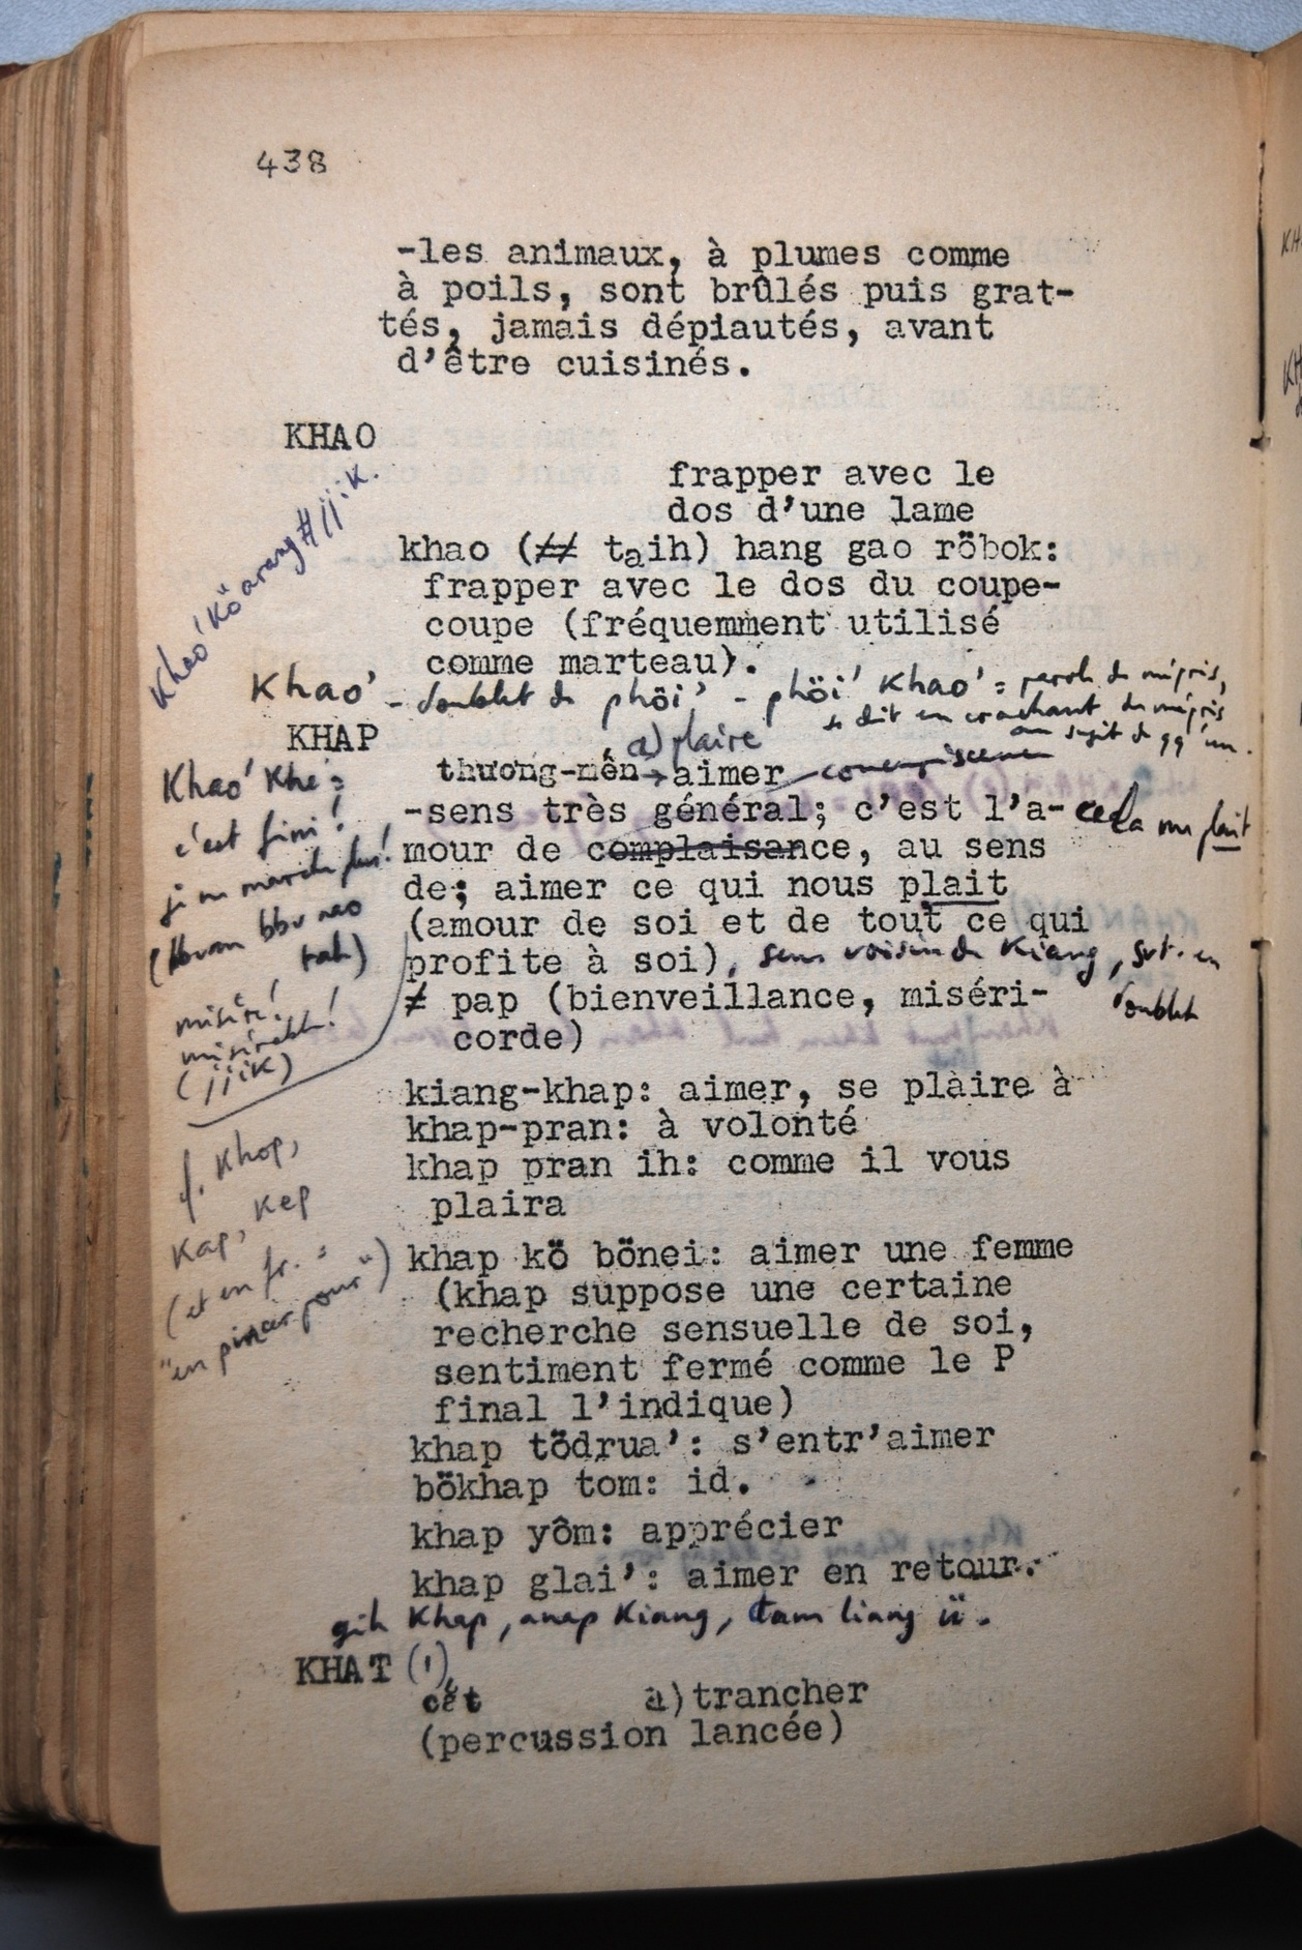 438
-les animaux, à plumes comme
à poils, sont brûlés puis grat-
tés, jamais dépiautés, avant
d'être cuisinés.
KHAO
frapper avec le
dos d'une lame
khao (≠ taih) hang gao röbok:
frapper avec le dos du coupe-
coupe (fréquemment utilisé
comme marteau).
Khao' kö arang ≠ jjik.
Khao' - doublet de phöi' - phöi' khao' = parole de mépris,
se dit en crachant du mépris
au sujet de qq'un.
KHAP
a) plaire
thương-mên → aimer
-sens très général; c'est l'a- cela me plait
mour de complaisance, au sens
de; aimer ce qui nous plait
(amour de soi et de tout ce qui
profite à soi), sens voisin de Kiang, svt. en
doublet
≠ pap (bienveillance, miséri-
corde)
Khao' Khe' =
c'est fini!
je ne marche plus!
tah)
misère!
misérable!
(jjik)
kiang-khap: aimer, se plaire à
khap-pran: à volonté
khap pran ih: comme il vous
plaira
khap kö bönei: aimer une femme
(khap suppose une certaine
recherche sensuelle de soi,
sentiment fermé comme le P
final l'indique)
f. Khop,
Kap, Kep
(et en fr. =
"en pincer pour")
khap tödrua': s'entr'aimer
bökhap tom: id.
khap yôm: apprécier
khap glai': aimer en retour.
gih Khap, anap Kiang, tam liang ü.
KHAT (')
cắt a) trancher
(percussion lancée)